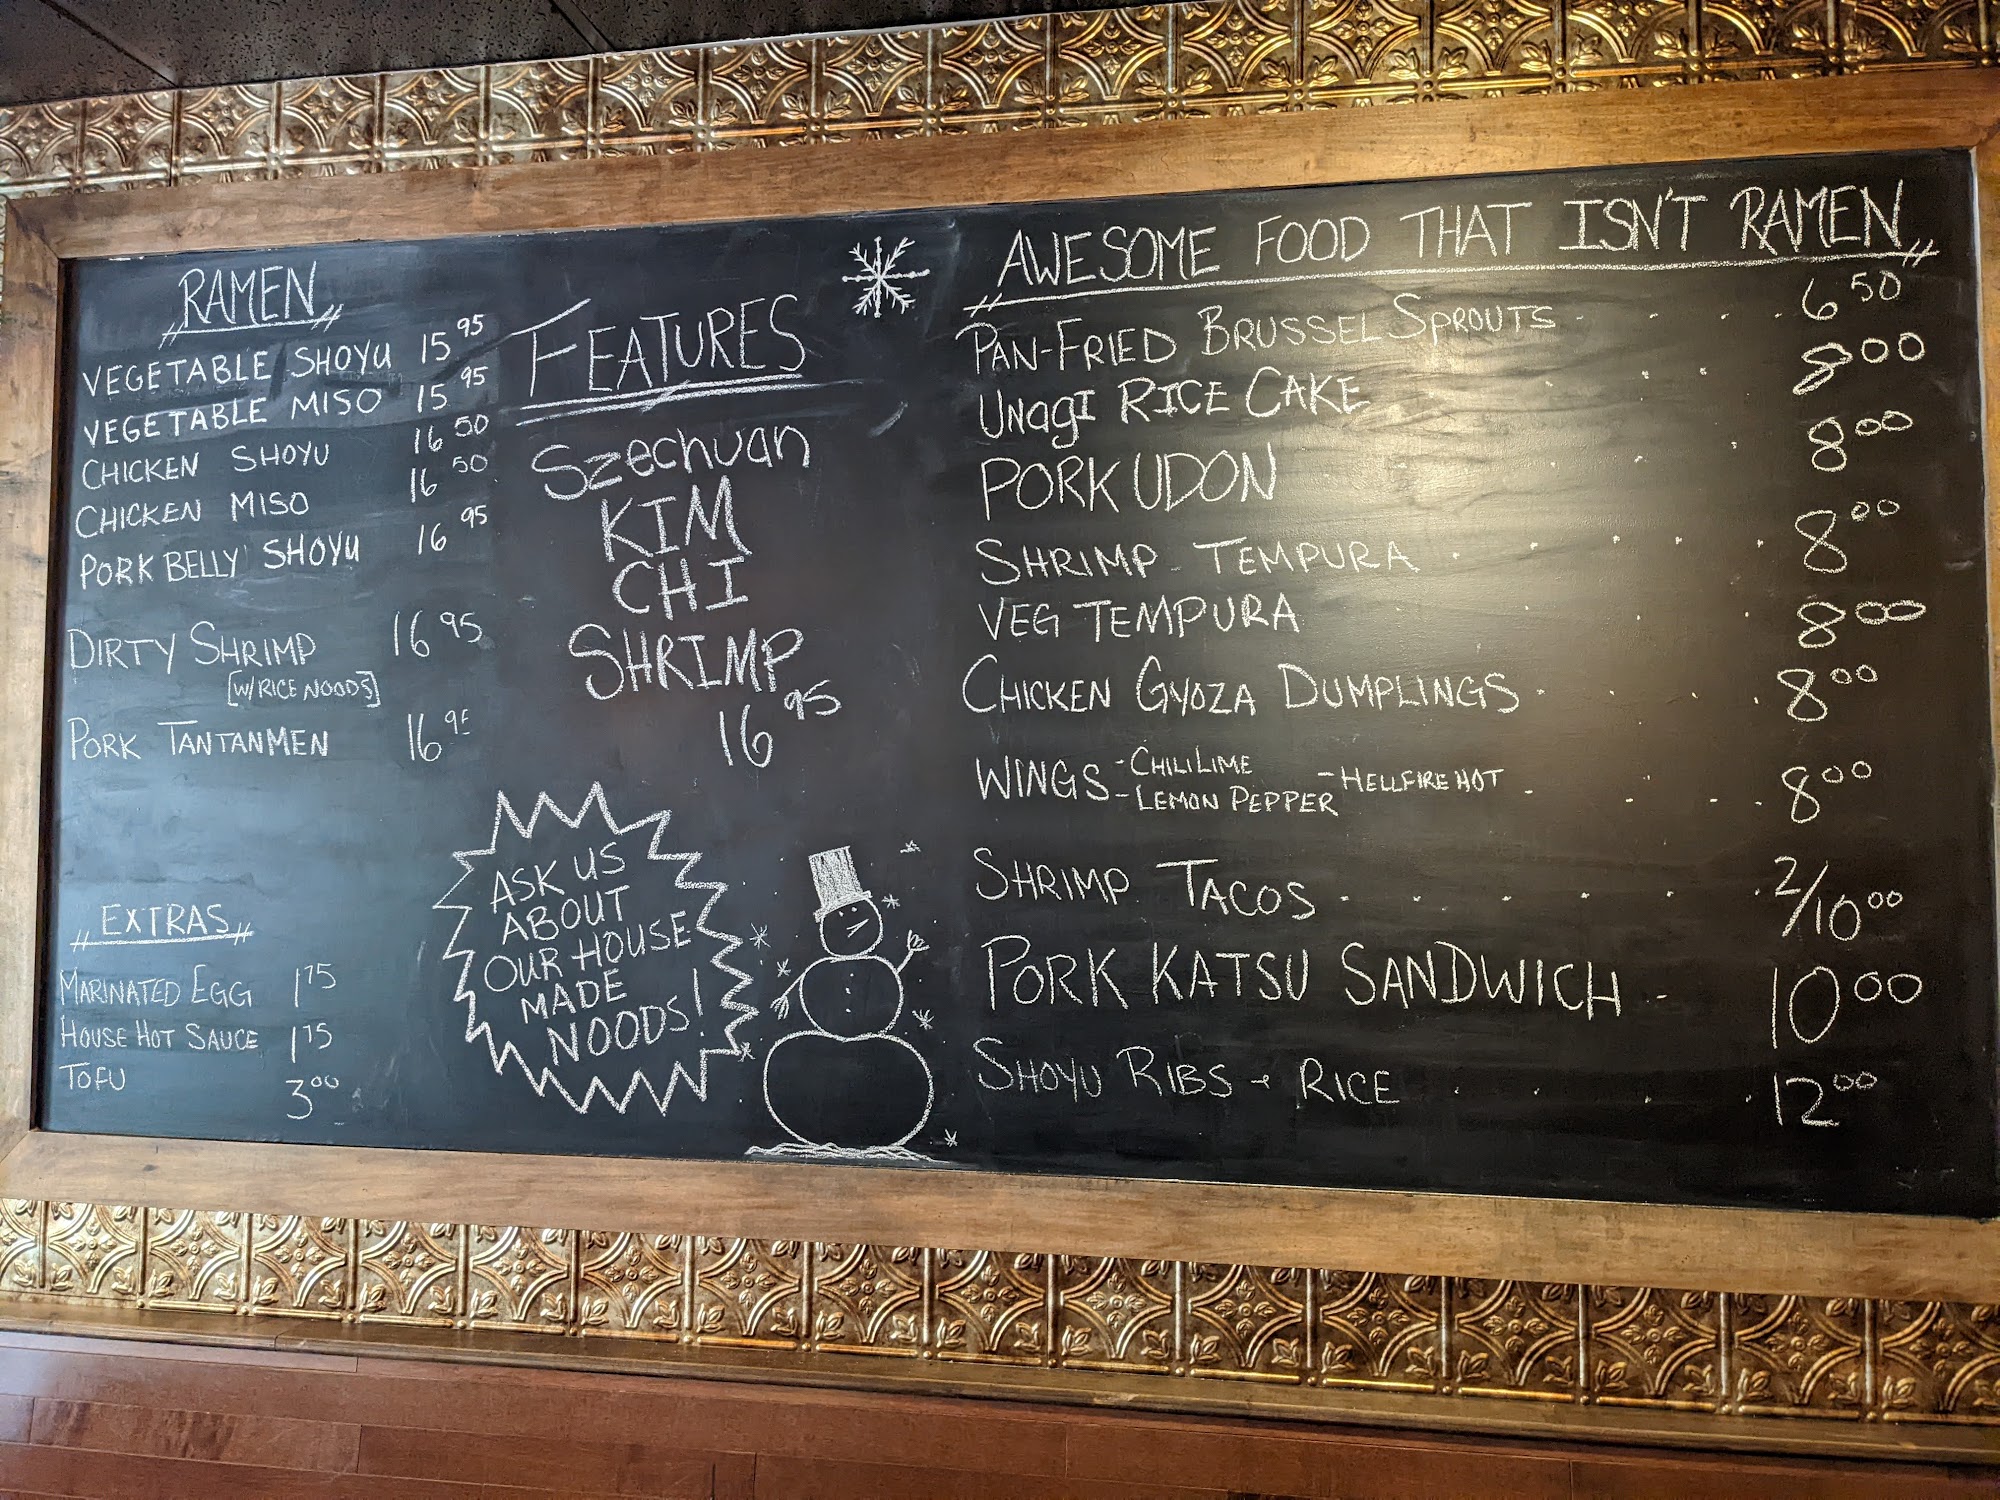 RAMEN
VEGETABLE SHOYU 15 95
VEGETABLE MISO 15 95
CHICKEN SHOYU 16 50
CHICKEN MISO 16 50
PORK BELLY SHOYU 16 95
DIRTY SHRIMP 16 95
[W/RICE NOODS]
PORK TANTANMEN 16 95
EXTRAS
MARINATED EGG 1 75
HOUSE HOT SAUCE 1 75
TOFU 3 00
FEATURES
Szechuan
KIM
CHI
SHRIMP
16 95
ASK US
ABOUT
OUR HOUSE
MADE
NOODS!
AWESOME FOOD THAT ISN'T RAMEN
PAN-FRIED BRUSSEL SPROUTS 6 50
UNAGI RICE CAKE 8 00
PORK UDON 8 00
SHRIMP TEMPURA 8 00
VEG TEMPURA 8 00
CHICKEN GYOZA DUMPLINGS 8 00
WINGS -CHILI LIME -HELLFIRE HOT 8 00
-LEMON PEPPER
SHRIMP TACOS 2/10 00
PORK KATSU SANDWICH - 10 00
SHOYU RIBS + RICE 12 00